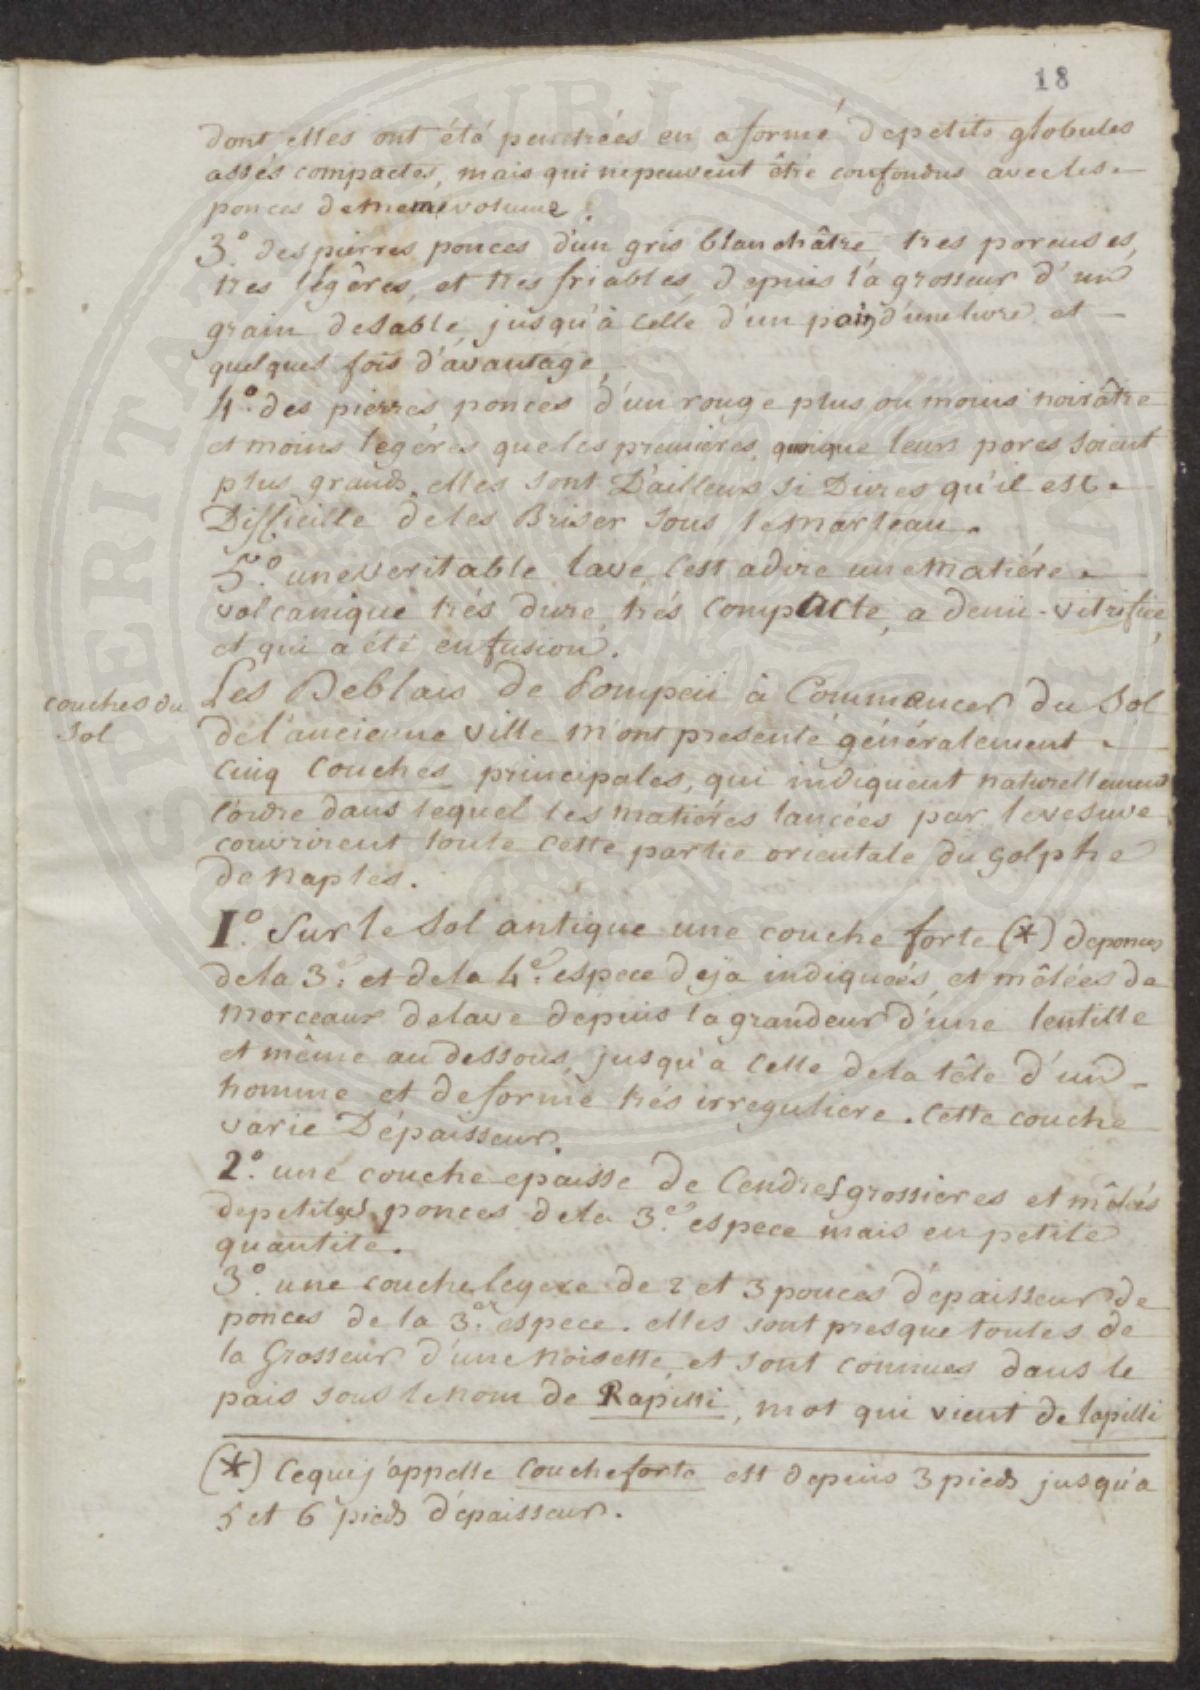 18
dont elles ont été penetrées en a formé de petits globules
assés compactes, mais qui ne peuvent être confondus avec les
ponces de meme volume.
3.° des pierres ponces d'un gris blanchâtre, tres poreuses,
tres légêres, et tres friables, depuis la grosseur d'un
grain de sable, jusqu'à celle d'un pain d'une livre et
quelques fois d'avantage,
4.° des pierres ponces d'un rouge plus ou moins noirâtre
et moins legéres que les premieres, quoique leurs pores soient
plus grands, elles sont D'ailleurs si Dures qu'il est
Difficille de les Briser sous le marteau.
5.° une veritable lave, c'est a dire une matiére
volcanique trés dure, trés compacte, a demi-vitrifiée,
et qui a été en fusion.
couches du
Sol
Les Deblais de Pompeii à Commencer du Sol
de l'ancienne ville m'ont presenté généralement
cinq couches principales, qui indiquent naturellement
l'ordre dans lequel les matiéres lancées par le vesuve
couvrirent toute cette partie orientale du golphe
de Naples.
1.° Sur le Sol antique une couche forte (*) de ponces
de la 3.e et de la 4.e espece deja indiquées, et mêlées de
morceaux de lave depuis la grandeur d'une lentille
et même au dessous, jusqu'a celle de la tête d'un
homme et de forme trés irreguliere. Cette couche
varie D'épaisseur.
2.° une couche epaisse de Cendres grossieres et mêlées
de petites ponces de la 3.e espece mais en petite
quantité.
3.° une couche legere de 2 et 3 pouces d'epaisseur de
ponces de la 3.e espece. elles sont presque toutes de
la Grosseur d'une Noisette, et sont connues dans le
païs sous le nom de Rapilli, mot qui vient de lapilli
(*) Ce que j'appelle couche forte est depuis 3 pieds jusqu'a
5 et 6 pieds d'épaisseur.